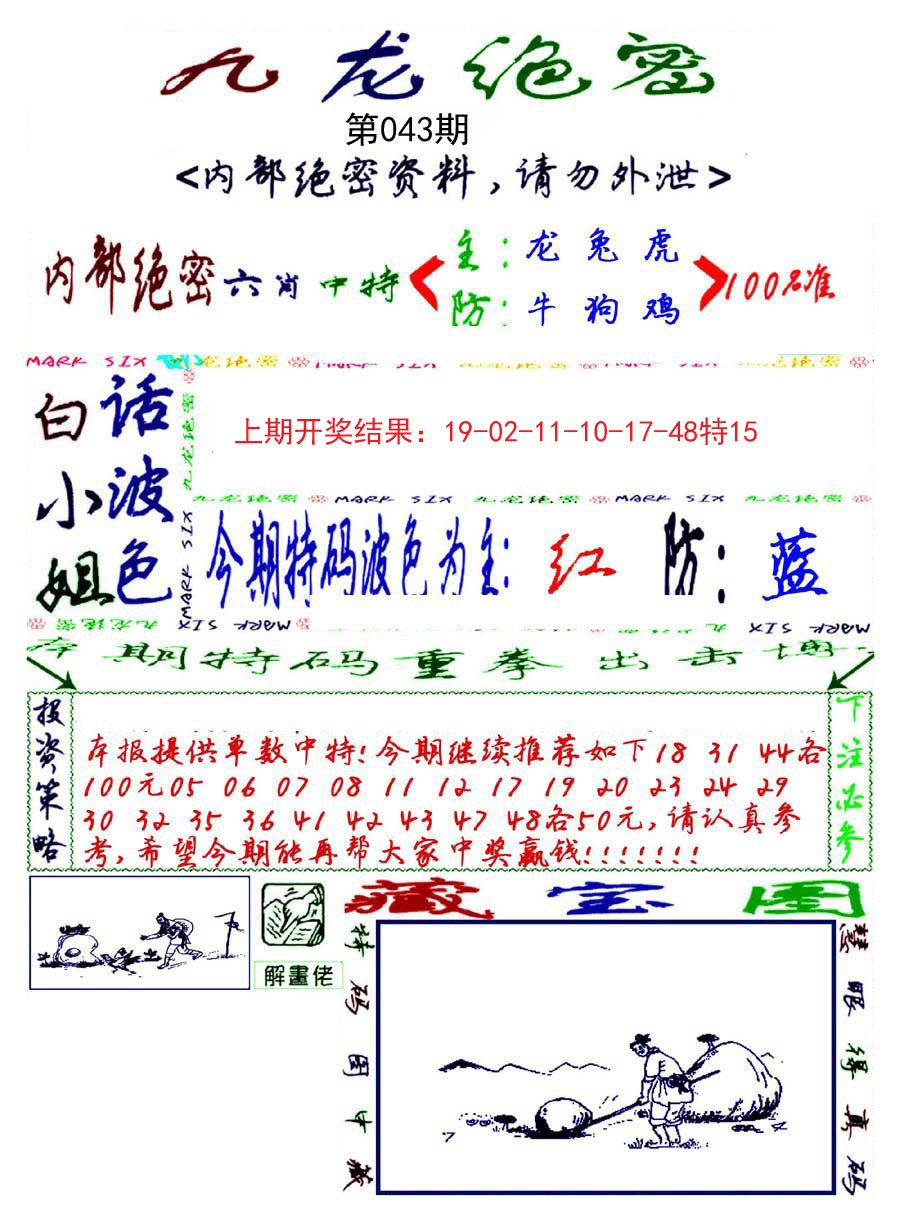 九龙绝密
第043期
<内部绝密资料,请勿外泄>
内部绝密六肖中特
主:龙 兔 虎
防:牛 狗 鸡
100%准
MARK SIX 九龙绝密 MARK SIX 九龙绝密 MARK SIX
白小姐
话波色
九龙绝密 MARK SIX
上期开奖结果：19-02-11-10-17-48特15
九龙绝密 MARK SIX 九龙绝密 MARK SIX 九龙绝密
今期特码波色为主:红 防:蓝
九龙绝密 MARK SIX MARK SIX
本期特码重拳出击博
投资策略
本报提供单数中特!今期继续推荐如下18 31 44各
100元05 06 07 08 11 12 17 19 20 23 24 29
30 32 35 36 41 42 43 47 48各50元,请认真参
考,希望今期能再帮大家中奖赢钱!!!!!!!
下注必参
解畫佬
藏宝图
特码图中藏
慧眼得真码
7
4